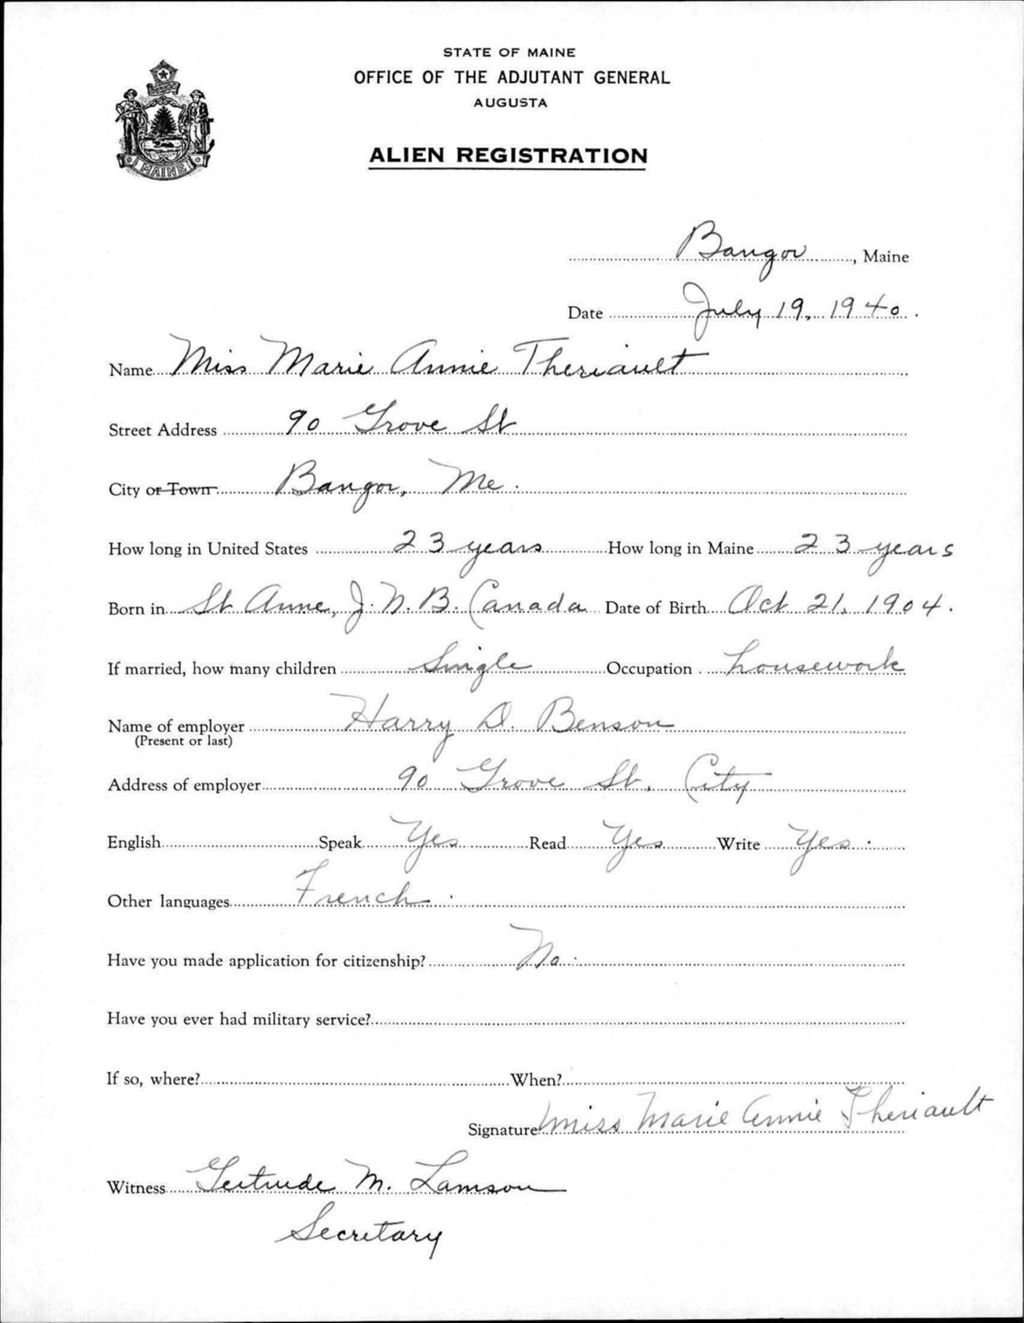 STATE OF MAINE
OFFICE OF THE ADJUTANT GENERAL
AUGUSTA
ALIEN REGISTRATION
MAINE
Bangor, Maine
Date July 19, 1940.
Name Miss Marie Annie Theriault
Street Address 90 Grove St
City or Town Bangor, Me.
How long in United States 23 years How long in Maine 23 years
Born in St Anne, J. N. B. Canada Date of Birth Oct 21, 1904.
If married, how many children Single Occupation housework
Name of employer Harry D. Benson
(Present or last)
Address of employer 90 Grove St. City
English Speak Yes Read Yes Write Yes.
Other languages French.
Have you made application for citizenship? No.
Have you ever had military service?
If so, where? When?
Signature Miss Marie Annie Theriault
Witness Gertrude M. Lamson
Secretary